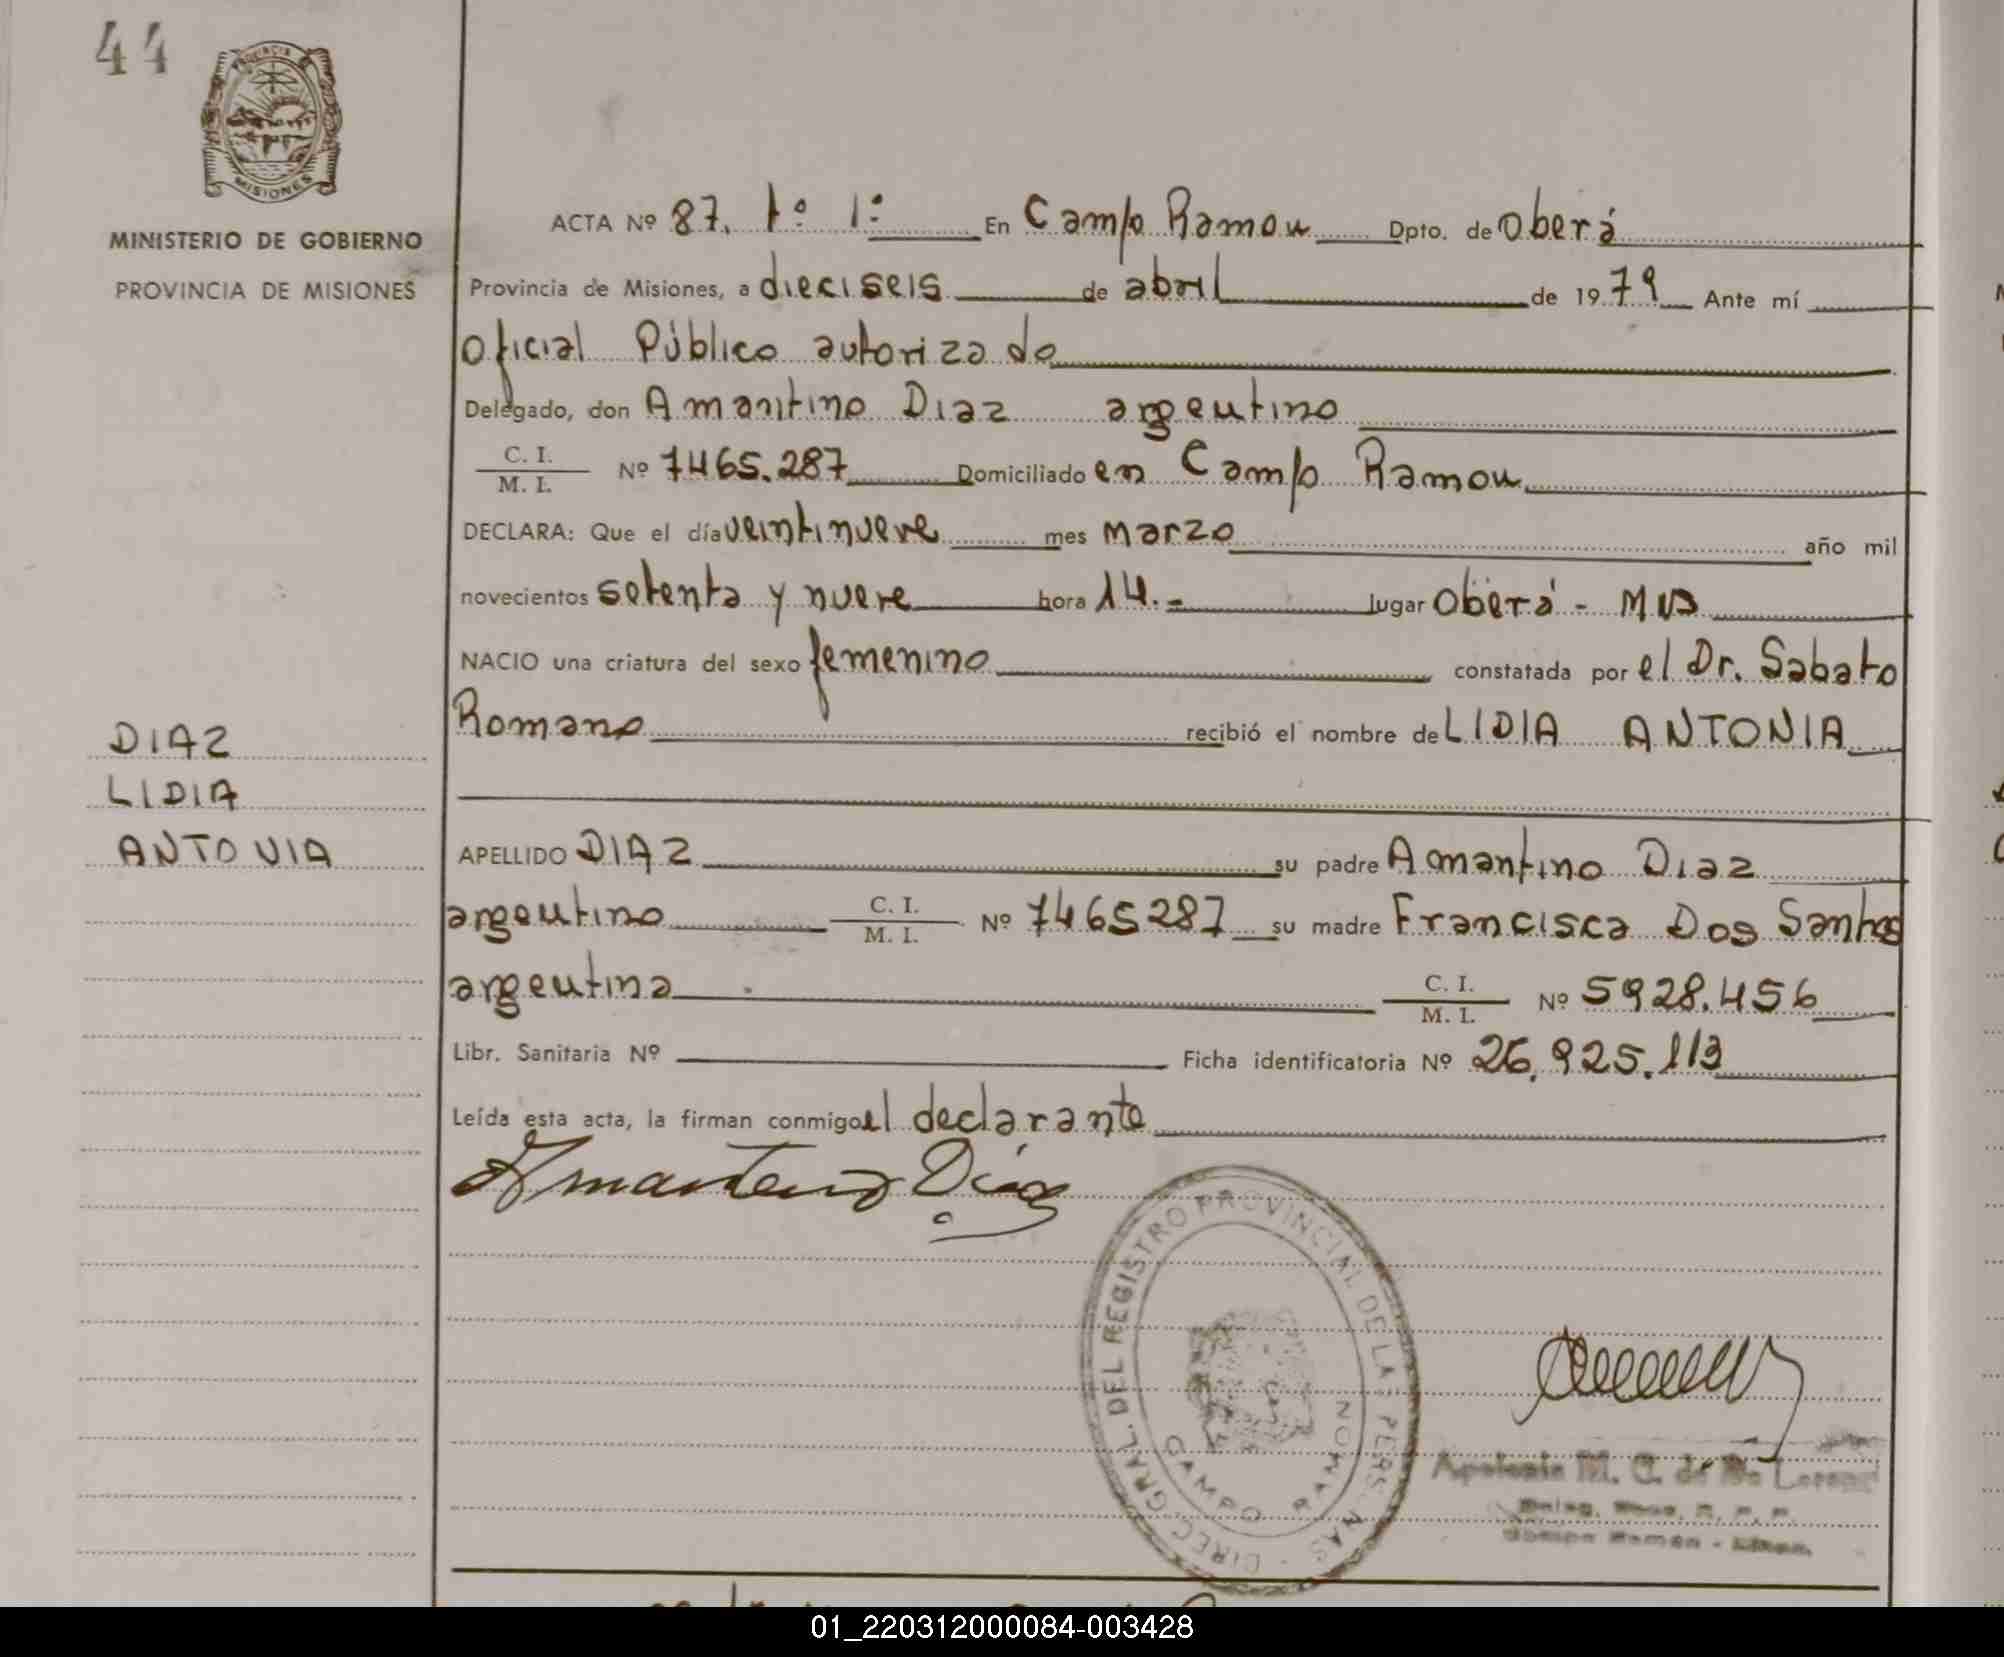 44
PROVINCIA
MISIONES
MINISTERIO DE GOBIERNO
PROVINCIA DE MISIONES
ACTA Nº 87. 1º 1º En Campo Ramon Dpto. de Oberá
Provincia de Misiones, a dieciseis de abril de 1979 Ante mí
Oficial Público autorizado
Delegado, don Amantino Diaz argentino
C. I. / M. I. Nº 7465.287 Domiciliado en Campo Ramon
DECLARA: Que el día veintinueve mes marzo año mil
novecientos setenta y nueve hora 14.- lugar Oberá - Mns
NACIO una criatura del sexo femenino constatada por el Dr. Sabato
Romano recibió el nombre de LIDIA ANTONIA
DIAZ
LIDIA
ANTONIA
APELLIDO DIAZ su padre Amantino Diaz
argentino C. I. / M. I. Nº 7465287 su madre Francisca Dos Santos
argentina C. I. / M. I. Nº 5928.456
Libr. Sanitaria Nº Ficha identificatoria Nº 26.925.113
Leída esta acta, la firman conmigo el declarante
Amantino Díaz
DIREC. GRAL. DEL REGISTRO PROVINCIAL DE LAS PERSONAS
CAMPO RAMON
Apolonia M. C. de
01_220312000084-003428